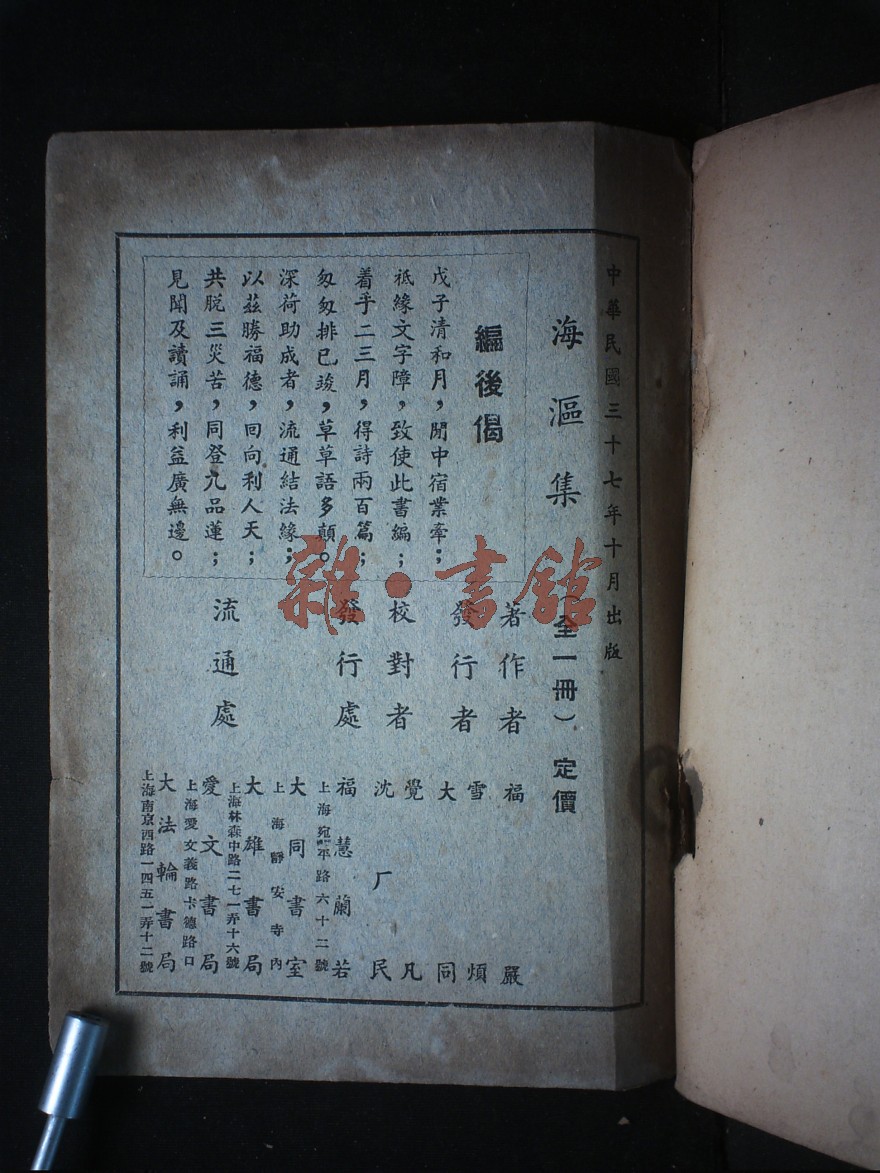 中華民國三十七年十月出版
海漚集（全一冊）定價
編後偈
戊子清和月，閒中宿業牽；
祇緣文字障，致使此書編；
着手二三月，得詩兩百篇；
匆匆排已竣，草草語多顛。
深荷助成者，流通結法緣；
以茲勝福德，回向利人天；
共脫三災苦，同登九品蓮；
見聞及讀誦，利益廣無邊。
著作者 福嚴
發行者 雪煩
大同
校對者 覺凡
沈厂民
發行處 福慧蘭若
上海宛平路六十二號
流通處 大同書室
上海靜安寺內
大雄書局
上海林森中路二七一弄十六號
愛文書局
上海愛文義路卡德路口
大法輪書局
上海南京西路一四五一弄十二號
雜·書館